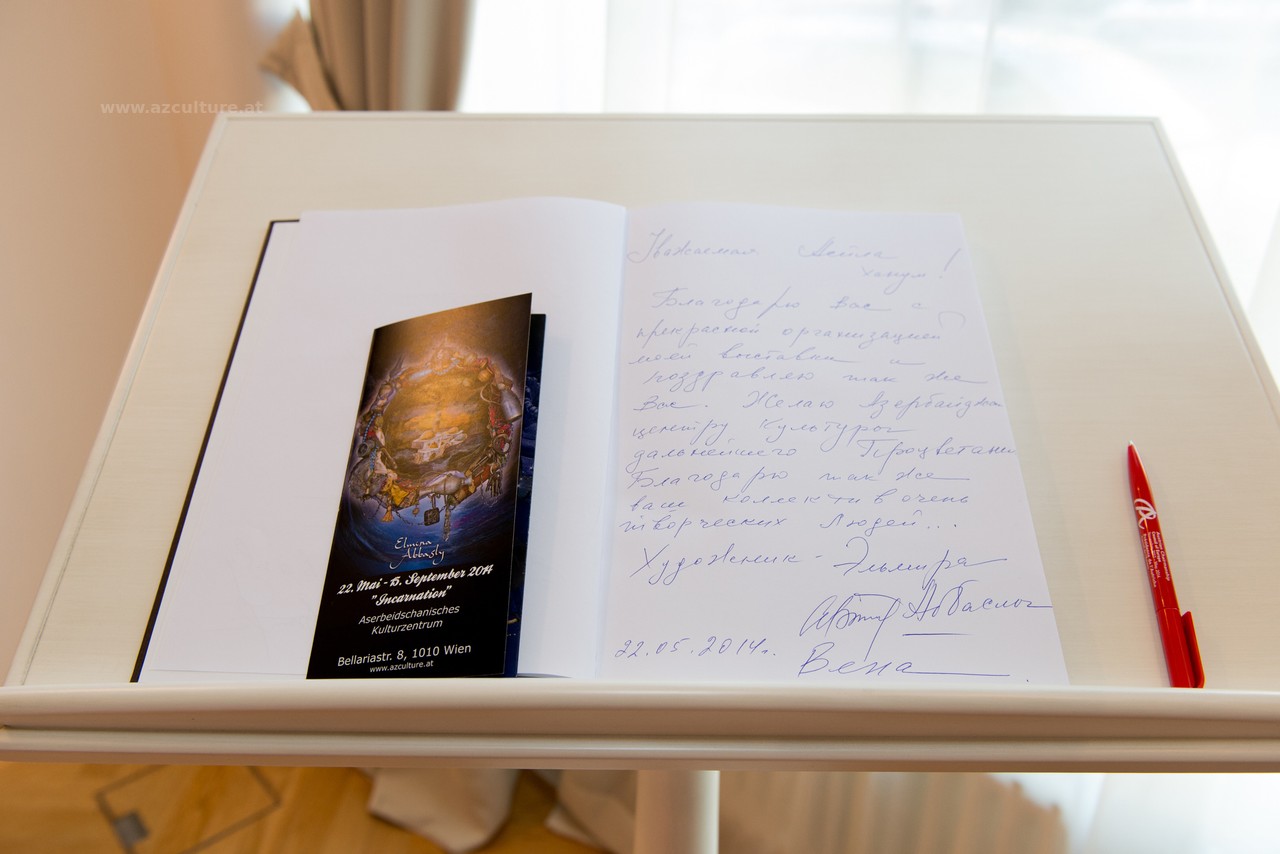 www.azculture.at
Уважаемая Лейла
ханум!
Благодарю Вас с
прекрасной организацией
моей выставки и
поздравляю так же
Вас. Желаю Азербайджан
центру Культуры
дальнейшего Процветани
Благодарю так же
ваш коллектив очень
творческих людей...
Художник - Эльмира
Аббаслы
22.05.2014г.
Вена
Elmira
Abbasly
22. Mai - 15. September 2014
"Incarnation"
Aserbeidschanisches
Kulturzentrum
Bellariastr. 8, 1010 Wien
www.azculture.at